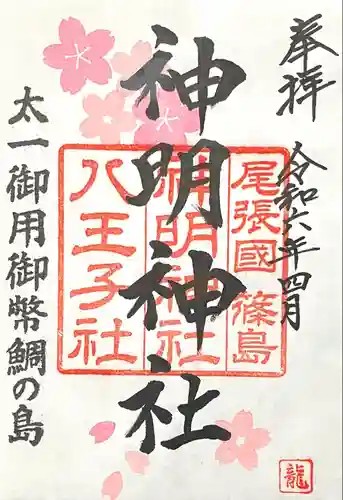 奉拝
令和六年四月
尾張國 篠島
神明神社
八王子社
神明神社
太一御用御幣鯛の島
龍